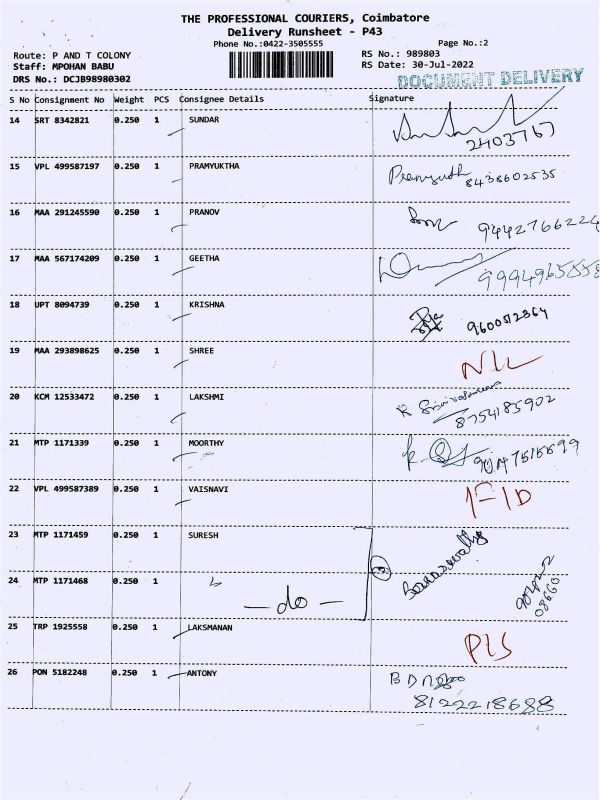 THE PROFESSIONAL COURIERS, Coimbatore
Delivery Runsheet - P43
Phone No.:0422-3505555 Page No.:2
Route: P AND T COLONY RS No.: 989803
Staff: MPOHAN BABU RS Date: 30-Jul-2022
DRS No.: DCJB98980302 DOCUMENT DELIVERY
S No Consignment No Weight PCS Consignee Details Signature
14 SRT 8342821 0.250 1 SUNDAR
2403767
15 VPL 499587197 0.250 1 PRAMYUKTHA
8438602535
16 MAA 291245590 0.250 1 PRANOV
9442766224
17 MAA 567174209 0.250 1 GEETHA
9994965558
18 UPT 8094739 0.250 1 KRISHNA
9600512364
19 MAA 293898625 0.250 1 SHREE NIL
20 KCM 12533472 0.250 1 LAKSHMI
8754185902
21 MTP 1171339 0.250 1 MOORTHY
22 VPL 499587389 0.250 1 VAISNAVI
23 MTP 1171459 0.250 1 SURESH
24 MTP 1171468 0.250 1 — do —
25 TRP 1925558 0.250 1 LAKSMANAN
26 PON 5182248 0.250 1 ANTONY
8122218688